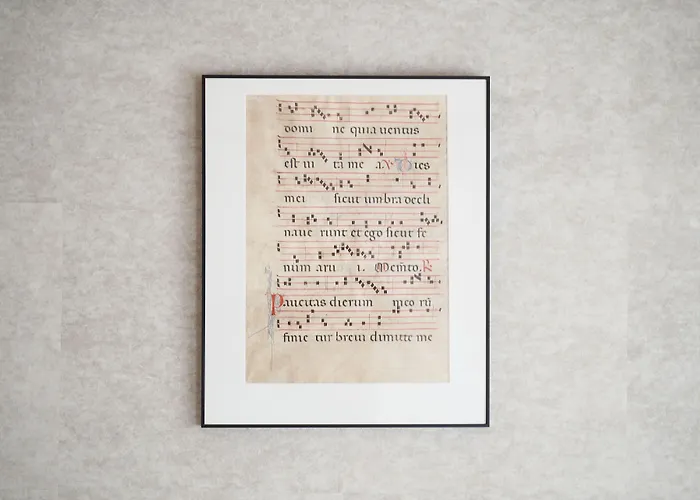 domi ne quia uentus
est ui ta me a. V. Dies
mei sicut umbra decli
naue runt et ego sicut fe
num aru i. Mem̄to. R.
Paucitas dierum meo rū
finie tur breui dimitte me